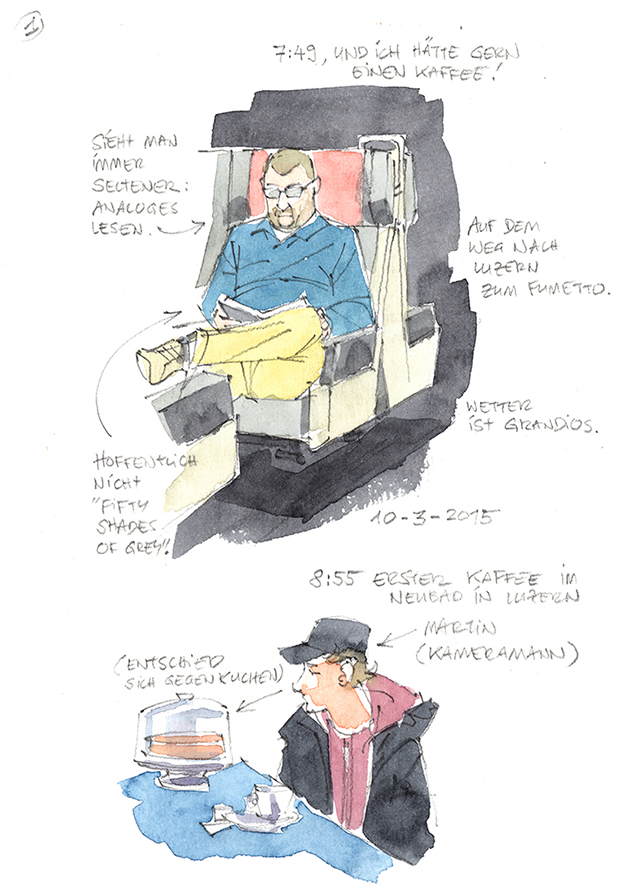 1
7:49, UND ICH HÄTTE GERN
EINEN KAFFEE!
SIEHT MAN
IMMER
SELTENER:
ANALOGES
LESEN.
AUF DEM
WEG NACH
LUZERN
ZUM FUMETTO.
WETTER
IST GRANDIOS.
HOFFENTLICH
NICHT
"FIFTY
SHADES
OF GREY"!
10-3-2015
8:55 ERSTER KAFFEE IM
NEUBAD IN LUZERN
MARTIN
(KAMERAMANN)
(ENTSCHIED
SICH GEGEN KUCHEN)